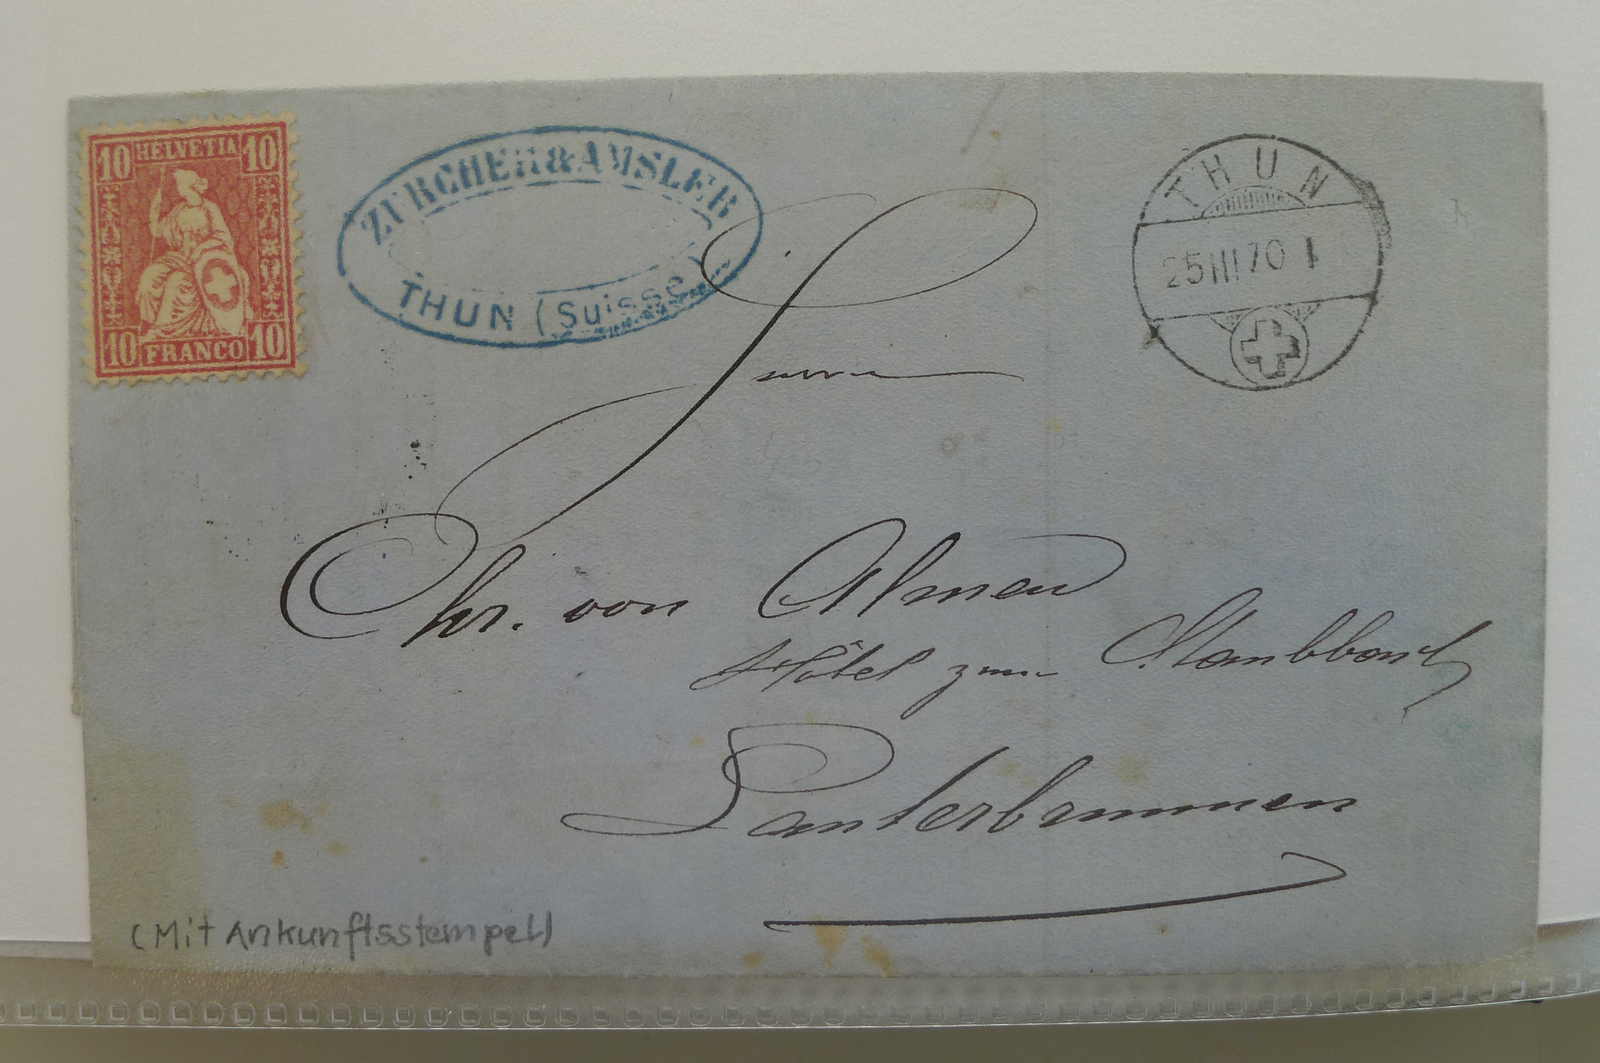 10 HELVETIA 10
10 FRANCO 10
ZÜRCHER & AMSLER
THUN (Suisse)
THUN
25 III 70 I
Herrn
Chr. von Almen
Hôtel zum Staubbach
Lauterbrunnen
(Mit Ankunftsstempel)